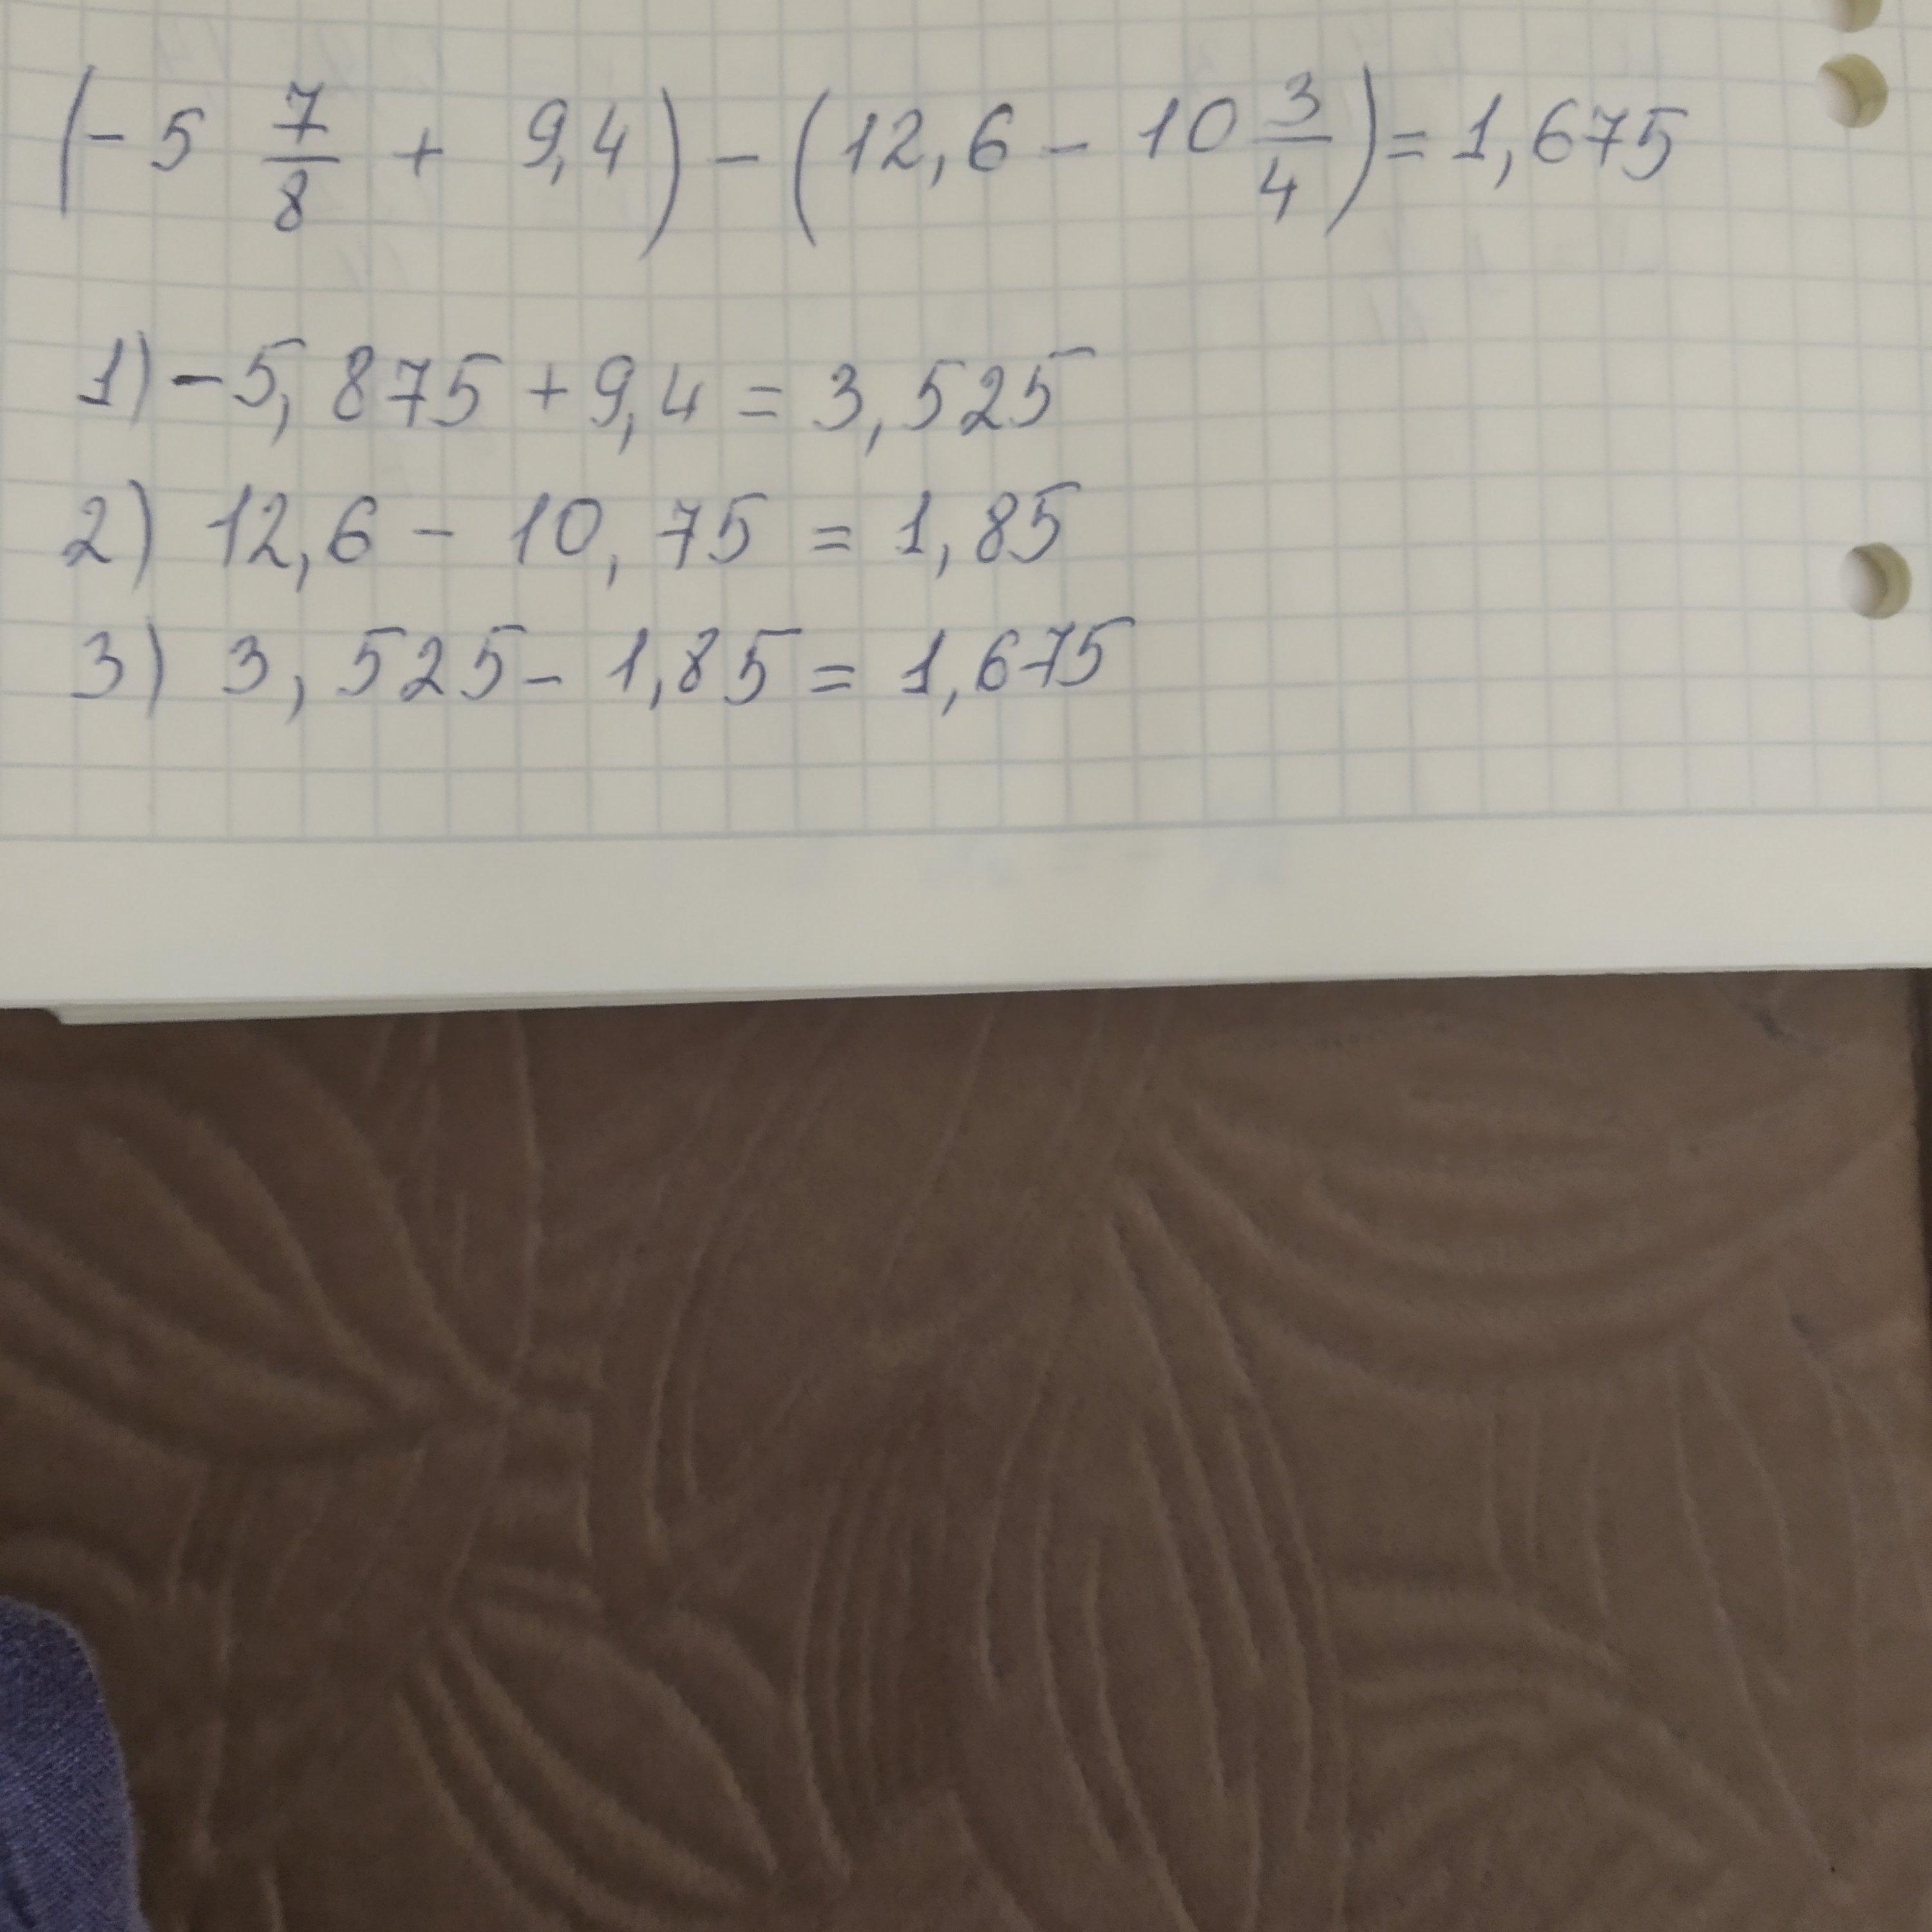 (-5 7/8 + 9,4) - (12,6 - 10 3/4) = 1,675
1) -5,875 + 9,4 = 3,525
2) 12,6 - 10,75 = 1,85
3) 3,525 - 1,85 = 1,675